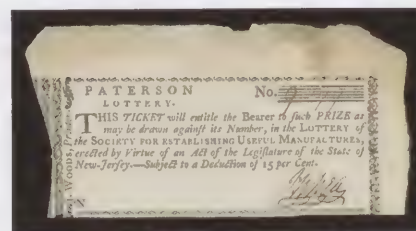 PATERSON No.
LOTTERY.
THIS TICKET will entitle the Bearer to such PRIZE as
may be drawn against its Number, in the LOTTERY of
the SOCIETY FOR ESTABLISHING USEFUL MANUFACTURES,
erected by Virtue of an Act of the Legislature of the State of
New-Jersey.—Subject to a Deduction of 15 per Cent.